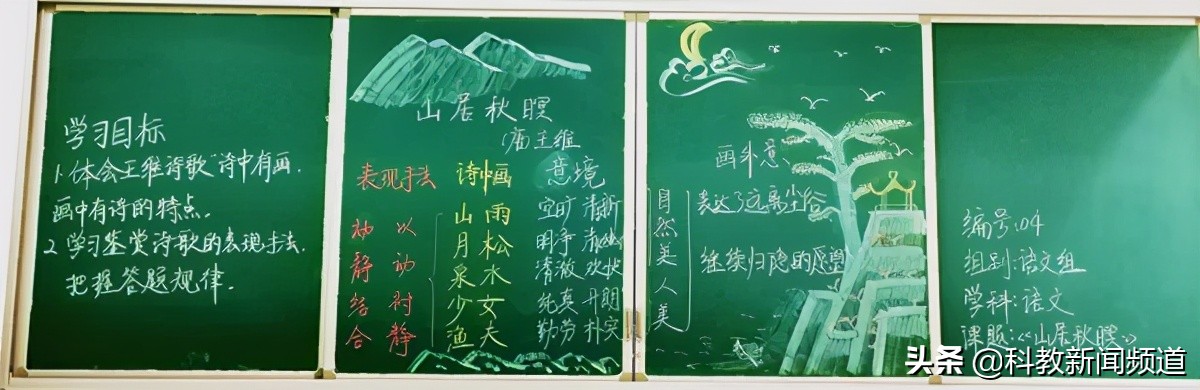 学习目标
1、体会王维诗歌"诗中有画,
画中有诗的特点。
2、学习鉴赏诗歌的表现手法,
把握答题规律.
山居秋暝
唐王维
表现手法 诗中画 意境
动静结合
以动衬静
山雨 空旷 清新
月松 明净 清幽
泉水 清澈 欢快
少女 纯真 开朗
渔夫 勤劳 朴实
画外意
自然美人美
表达了远离尘俗
继续归隐的愿望
编号:04
组别:语文组
学科:语文
课题:《山居秋暝》
头条 @科教新闻频道